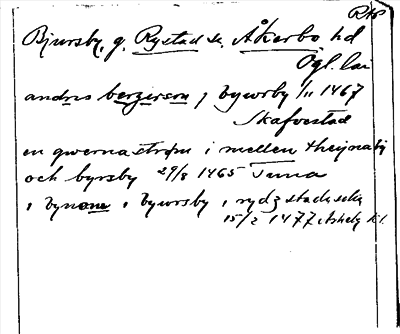 RAP
Bjursby, g. Rystad sn. Åkerbo hd
Ögl. län
andres bergerson j bywrby 1/11 1467
Skafvestad
en qwernastrøm i mellen theynaby
och byrsby 29/8 1465 Tuna
i bynom i bywrsby i rydzstada sokn
15/2 1477 Askeby kl.